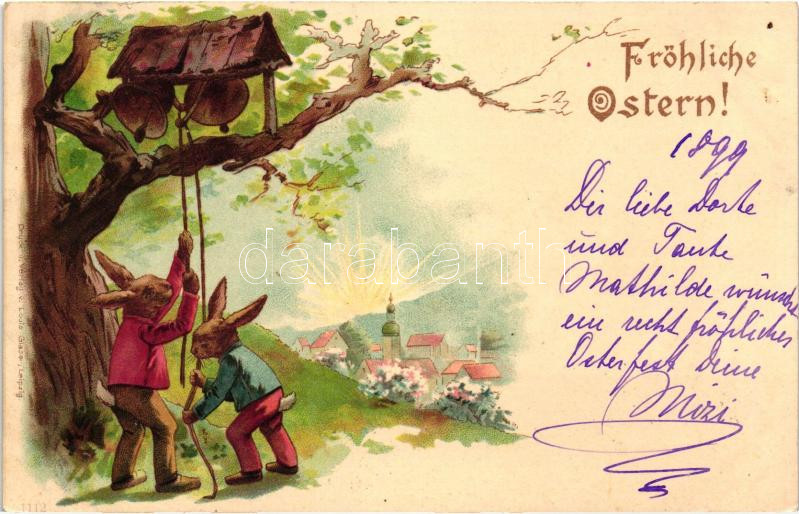 Fröhliche
Ostern!
1899
Dir liebe Dorte
und Tante
Mathilde wünscht
ein recht fröhliches
Osterfest deine
Mizi
darabanth
Druck u. Verlag v. Louis Glaser, Leipzig.
1112